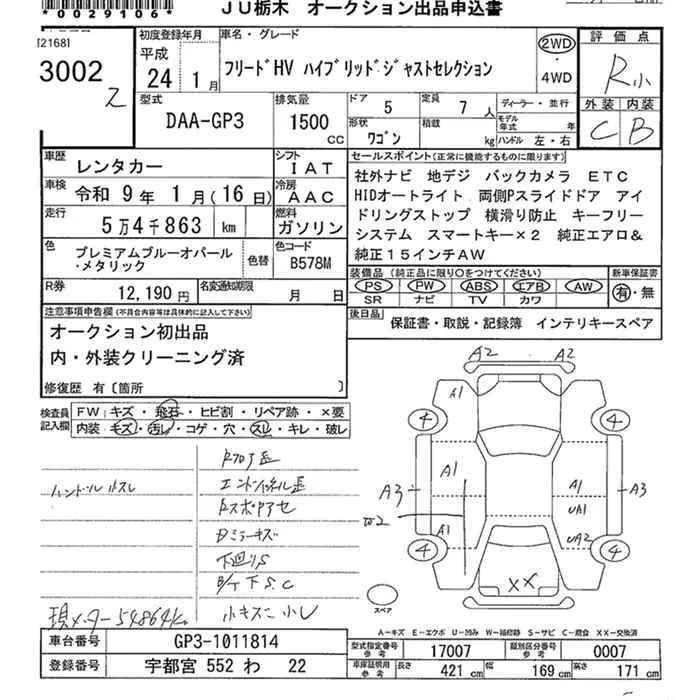 *0029106*
JU栃木 オークション出品申込書
21681
3002
Z
初度登録年月
平成
24年 1月
車名・グレード
フリードHV ハイブリッドジャストセレクション
2WD
・
4WD
評価点
R小
外装 内装
C B
型式
DAA-GP3
排気量
1500
cc
ドア 5
定員 7人
形状 ワゴン
積載 kg
ディーラー・並行
モデル年式 年
ハンドル 左・右
車歴
レンタカー
シフト
IAT
車検
令和 9年 1月(16日)
冷房
AAC
走行
5万4千863 km
燃料
ガソリン
色
プレミアムブルーオパール
・メタリック
色替
色コード
B578M
R券
12,190円
名変通知期限
月 日
セールスポイント(正常に機能するものに限ります)
社外ナビ 地デジ バックカメラ ETC
HIDオートライト 両側Pスライドドア アイ
ドリングストップ 横滑り防止 キーフリー
システム スマートキー×2 純正エアロ&
純正15インチAW
装備品(純正品に限り○をつけてください)
PS PW ABS エアB AW
SR ナビ TV カワ
新車保証書
有・無
後日品
保証書・取説・記録簿 インテリキースペア
注意事項申告欄(不具合内容等は具体的に記入して下さい)
オークション初出品
内・外装クリーニング済
修復歴 有〔箇所 〕
検査員
記入欄
FW キズ・飛石・ヒビ割・リペア跡・×要
内装 キズ・汚れ・コゲ・穴・スレ・キレ・破レ
ハンドルスレ
下廻りS
小キズ 小
現メーター54864K
A2 A2
A1
4 4
A1
A3
A1
A1
UA1
A3
UA2
4 4
XX
スペア
A-キズ E-エクボ U-凹み W-補修跡 S-サビ C-腐食 XX-交換済
車台番号
GP3-1011814
登録番号
宇都宮 552 わ 22
型式指定番号
参考
17007
類別区分番号
参考
0007
車庫証明用
参考
長さ 421cm
幅 169cm
高さ 171cm